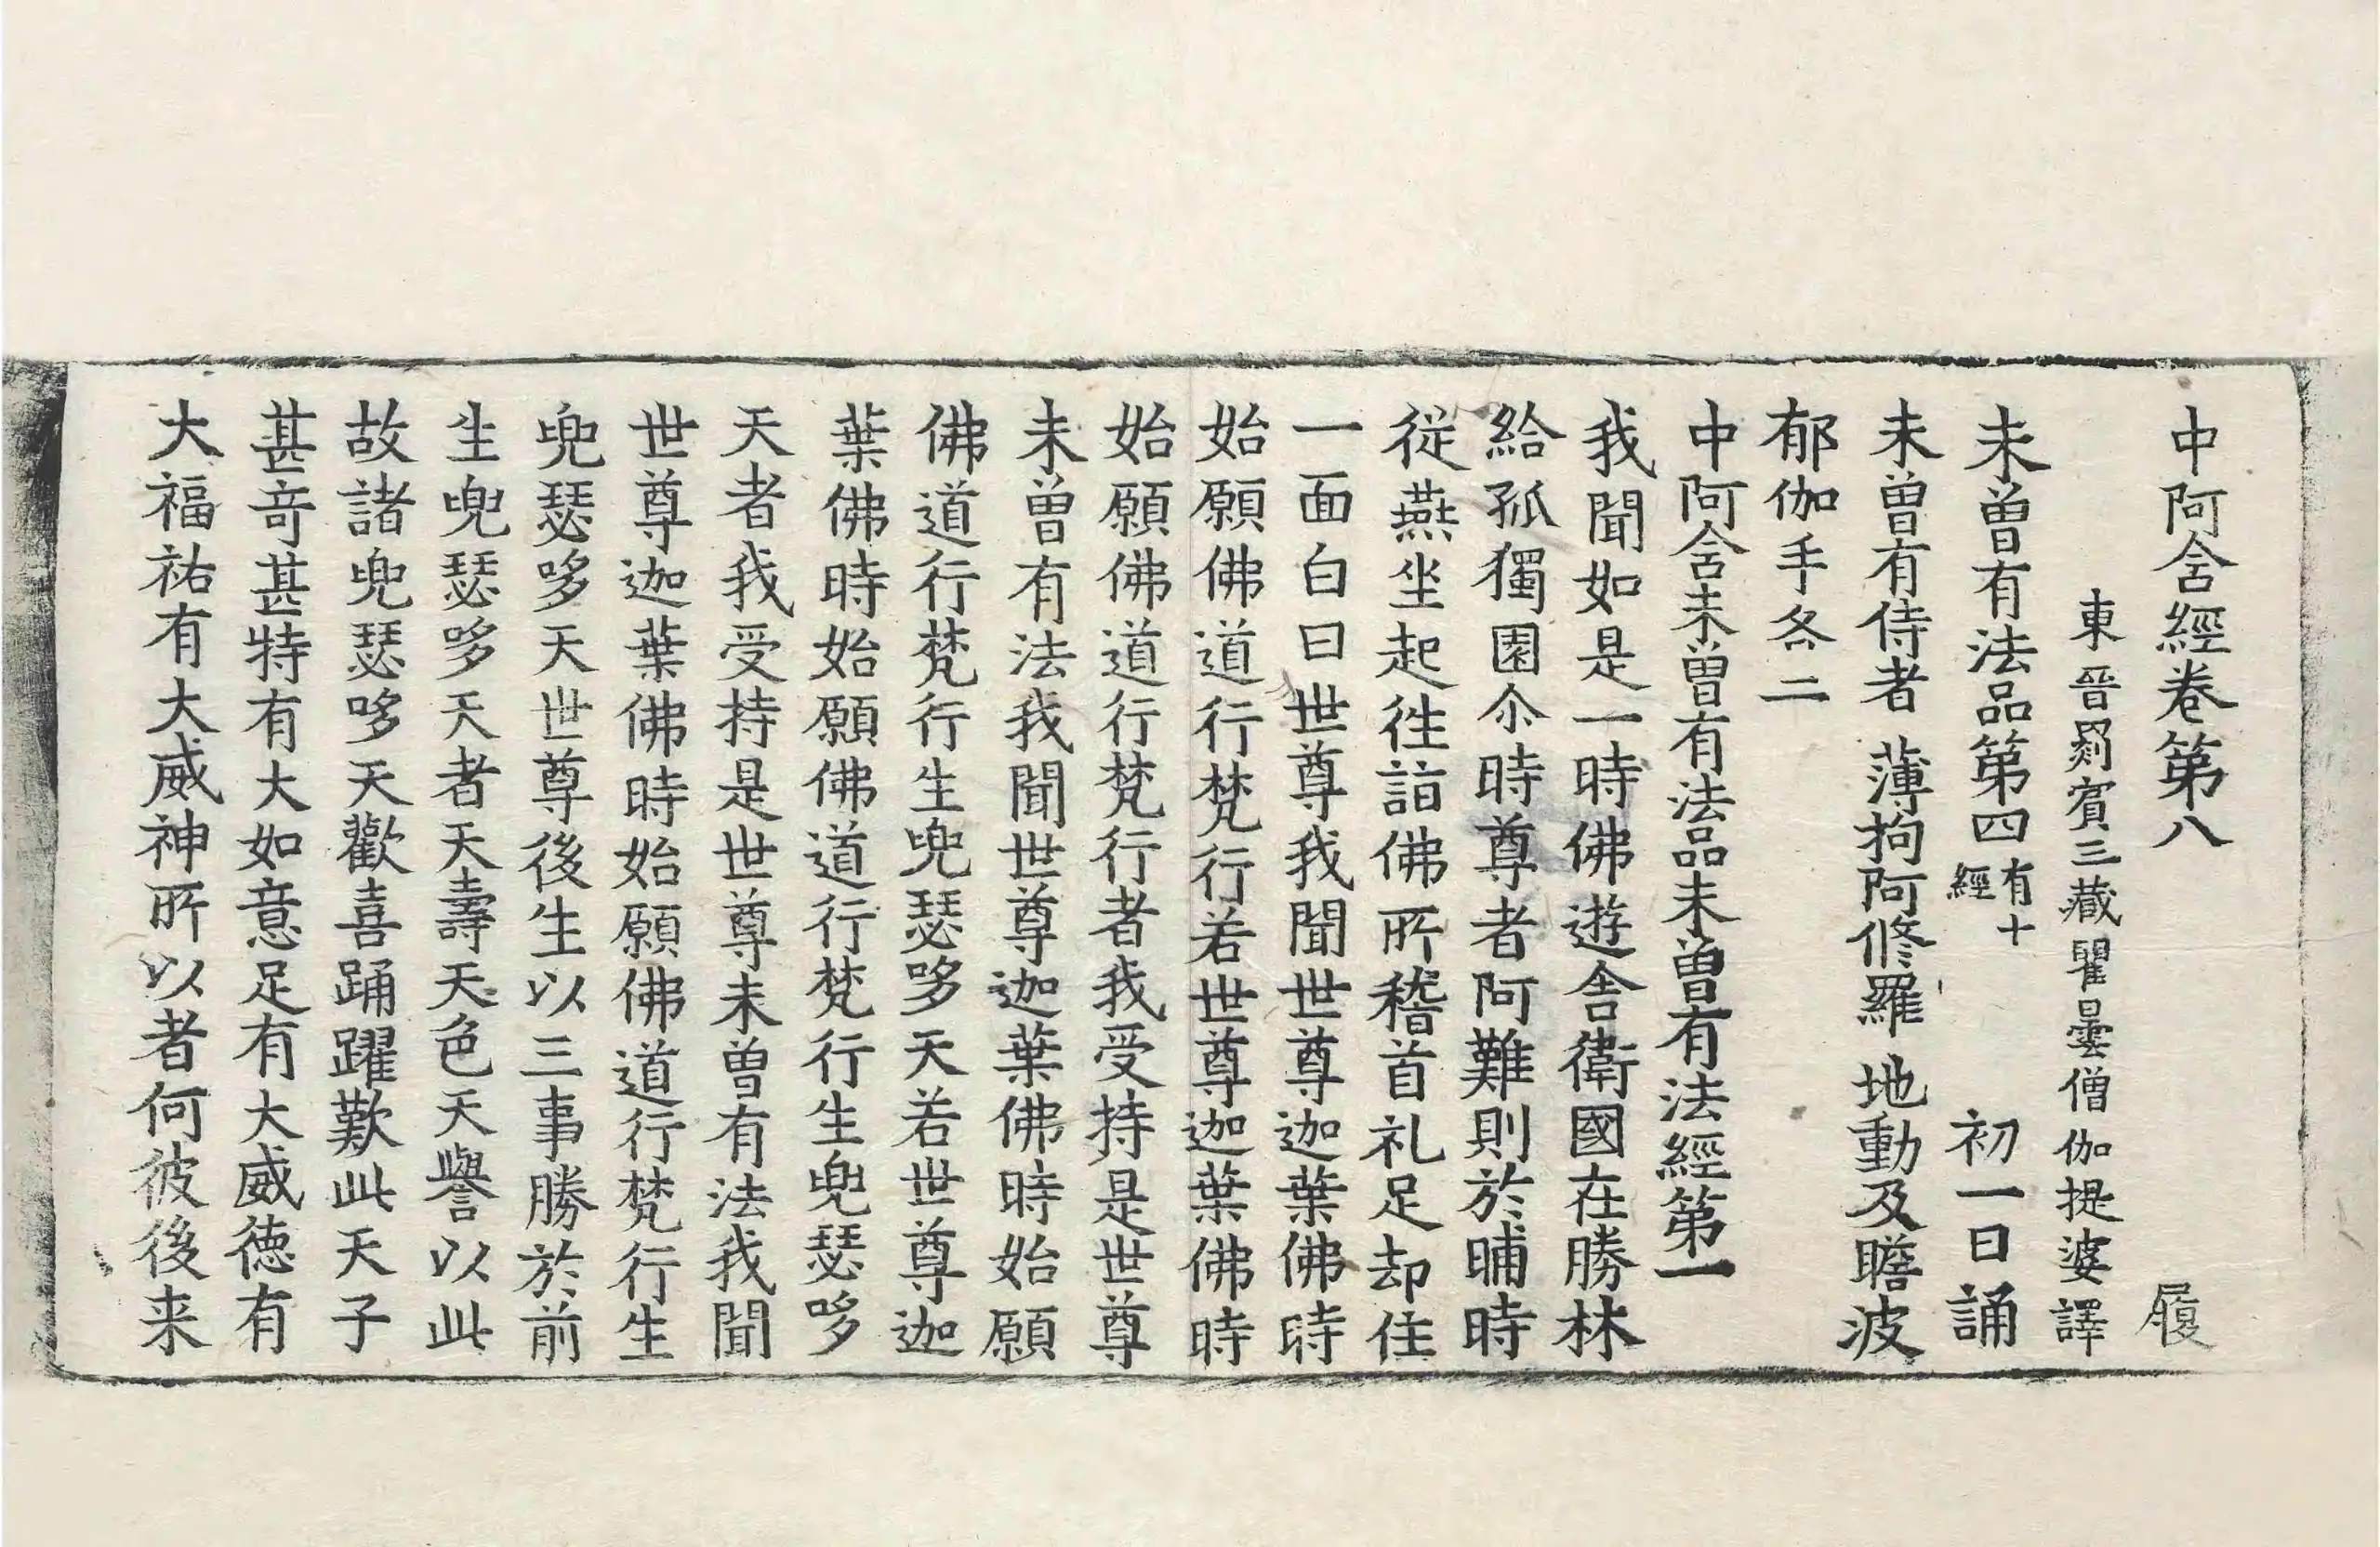 中阿含經卷第八　履
東晉罽賓三藏瞿曇僧伽提婆譯
未曾有法品第四有十經　初一日誦
未曾有侍者　薄拘阿修羅　地動及瞻波
郁伽手各二
中阿含未曾有法品未曾有法經第一
我聞如是一時佛遊舍衛國在勝林
給孤獨園尒時尊者阿難則於晡時
從燕坐起徃詣佛所稽首礼足却住
一面白曰世尊我聞世尊迦葉佛時
始願佛道行梵行若世尊迦葉佛時
始願佛道行梵行者我受持是世尊
未曾有法我聞世尊迦葉佛時始願
佛道行梵行生兜瑟哆天若世尊迦
葉佛時始願佛道行梵行生兜瑟哆
天者我受持是世尊未曾有法我聞
世尊迦葉佛時始願佛道行梵行生
兜瑟哆天世尊後生以三事勝於前
生兜瑟哆天者天壽天色天譽以此
故諸兜瑟哆天歡喜踊躍歎此天子
甚奇甚特有大如意足有大威德有
大福祐有大威神所以者何彼後来